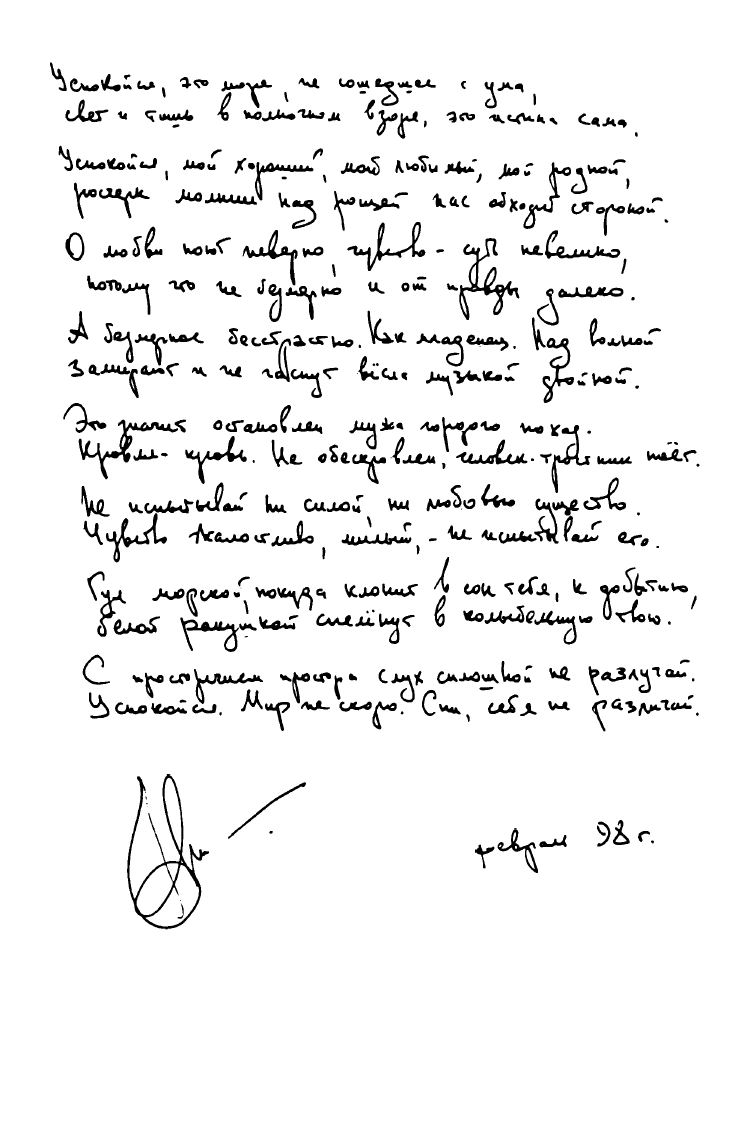 Успокойся, это море, не сошедшее с ума,
свет и тишь в полночном взоре, это истина сама.
Успокойся, мой хороший, мой любимый, мой родной,
росчерк молнии над рощей нас обходит стороной.
О любви поют неверно, чувство - суть невелико,
потому что не безмерно и от правды далеко.
А безмерное бесстрастно. Как младенец. Над волной
замирают и не гаснут вёсла музыкой двойной.
Это значит остановлен мужа гордого поход.
Кровля - кровь. Не обескровлен, человек-тростник поёт.
Не испытывай ни силой, ни любовью существо.
Чувство жалостливо, милый, - не испытывай его.
Гул морской, покуда клонит в сон тебя, к добытию,
белой ракушкой спелёнут в колыбельную твою.
С просторечием простора слух сплошной не разлучай.
Успокойся. Мир не скоро. Спи, себя не различай.
февраль 98 г.